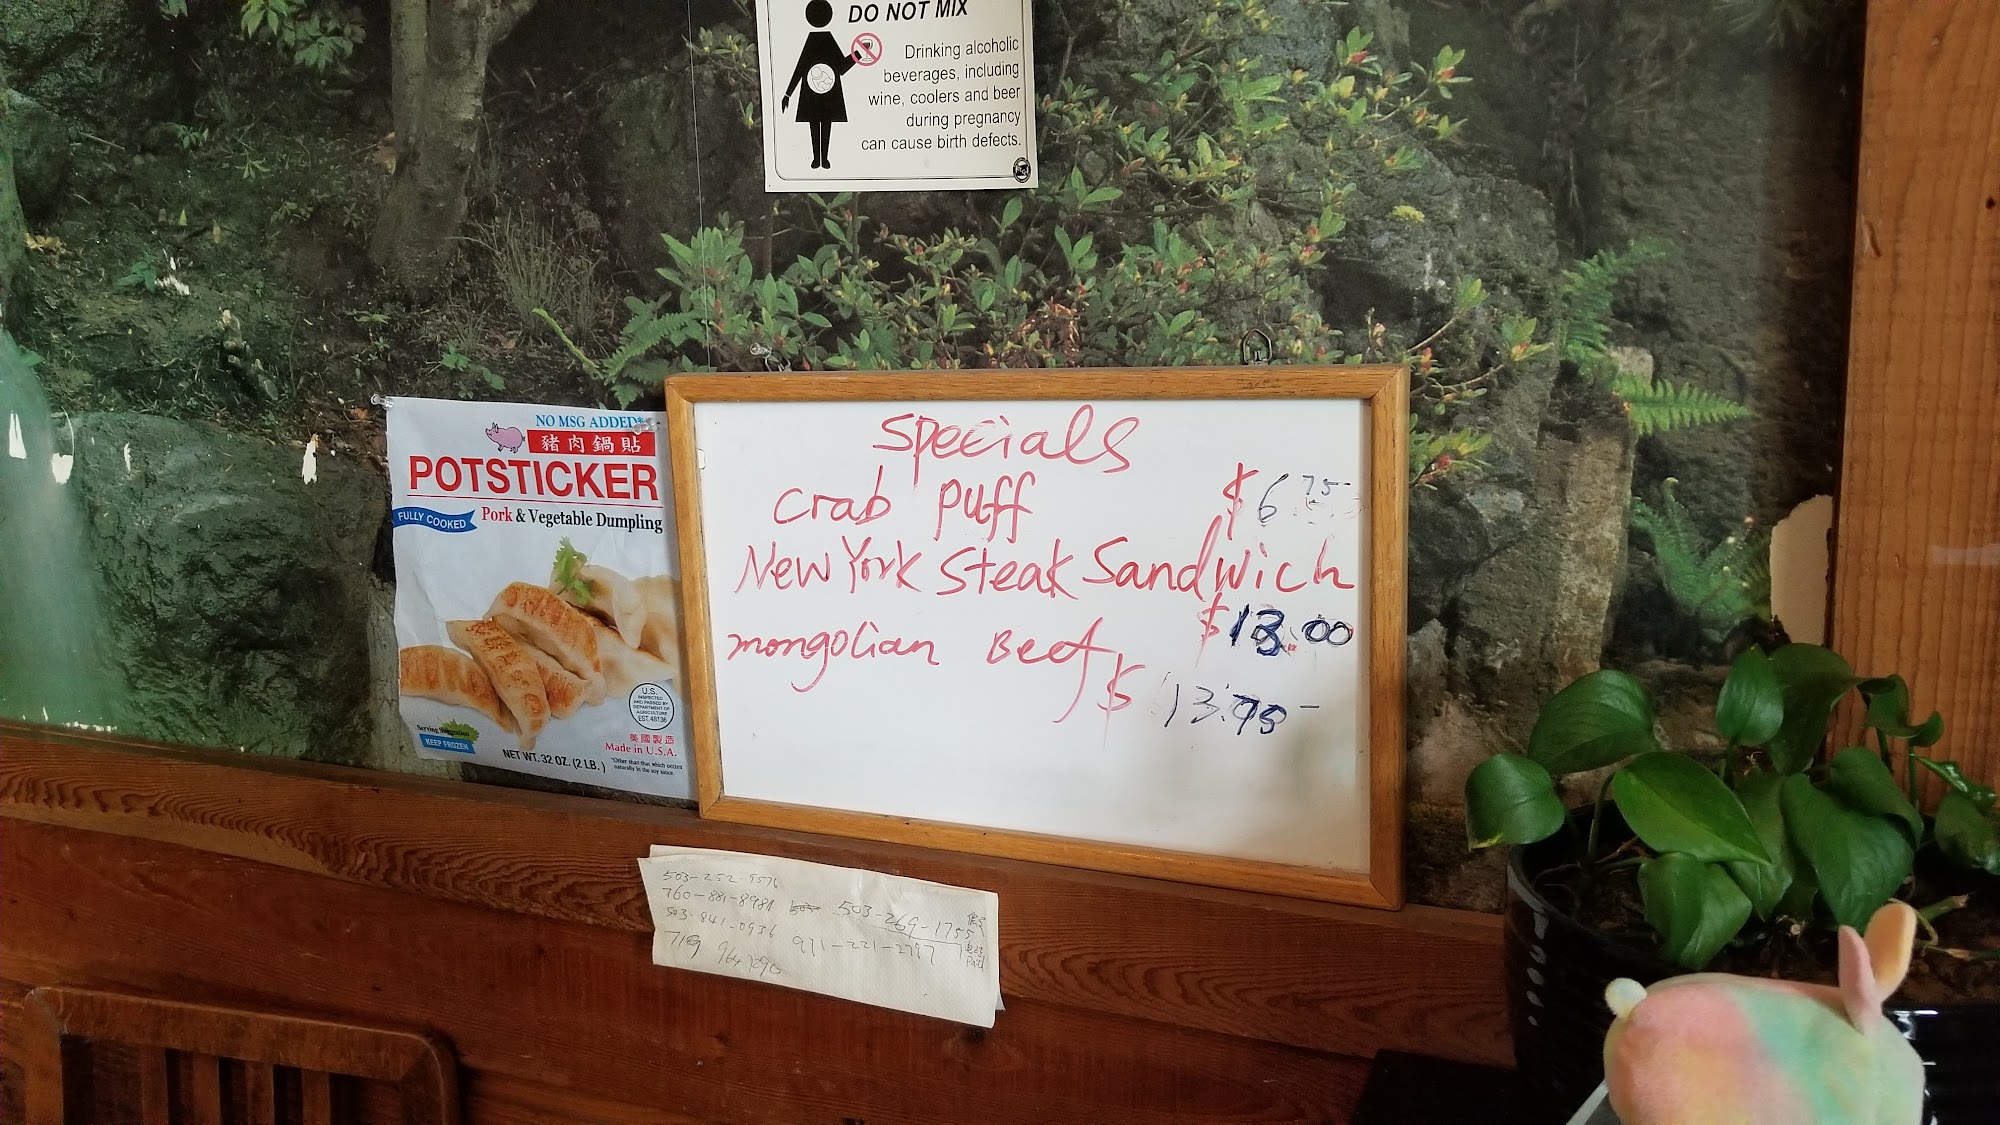 DO NOT MIX
Drinking alcoholic
beverages, including
wine, coolers and beer
during pregnancy
can cause birth defects.
NO MSG ADDED*
豬肉鍋貼
POTSTICKER
FULLY COOKED
Pork & Vegetable Dumpling
U.S.
INSPECTED
AND PASSED BY
DEPARTMENT OF
AGRICULTURE
EST. 48136
Serving Suggestion
KEEP FROZEN
NET WT. 32 OZ. (2 LB.)
美國製造
Made in U.S.A.
*Other than that which occurs
naturally in the soy sauce
Specials
Crab Puff $6.75
New York Steak Sandwich
$13.00
mongolian Beef $13.95
503-252-9576
760-881-8981
503-269-1755
503-841-0936
971-221-2797
719 964 7290